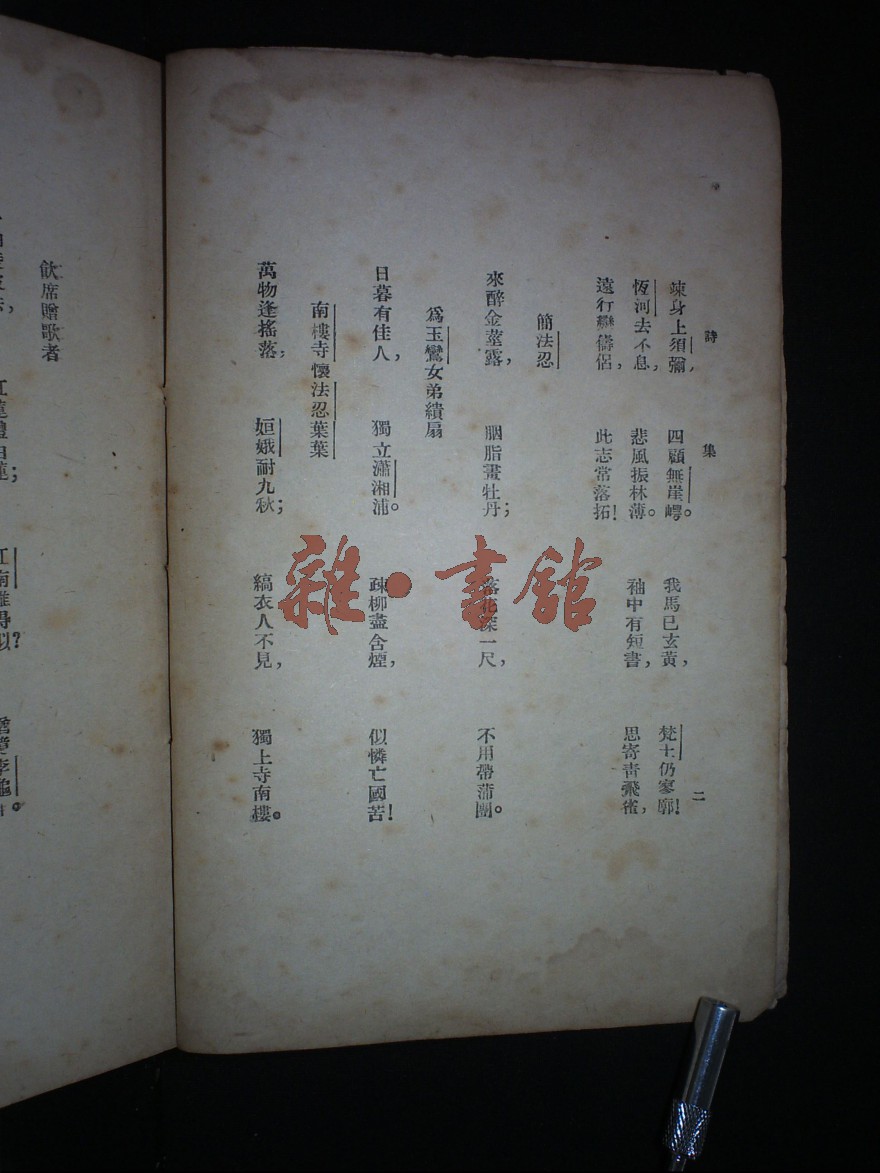 詩集 二
竦身上須彌，四顧無崖崿。我馬已玄黃，梵土仍寥廓！
恆河去不息，悲風振林薄。袖中有短書，思寄青飛雀，
遠行戀儔侶，此志常落拓！
簡法忍
來醉金莖露，胭脂畫牡丹；落花深一尺，不用帶蒲團。
爲玉鸞女弟繢扇
日暮有佳人，獨立瀟湘浦。疎柳盡含煙，似憐亡國苦！
南樓寺懷法忍葉葉
萬物逢搖落，姮娥耐九秋；縞衣人不見，獨上寺南樓。
飲席贈歌者
江南難得似？
雜·書館